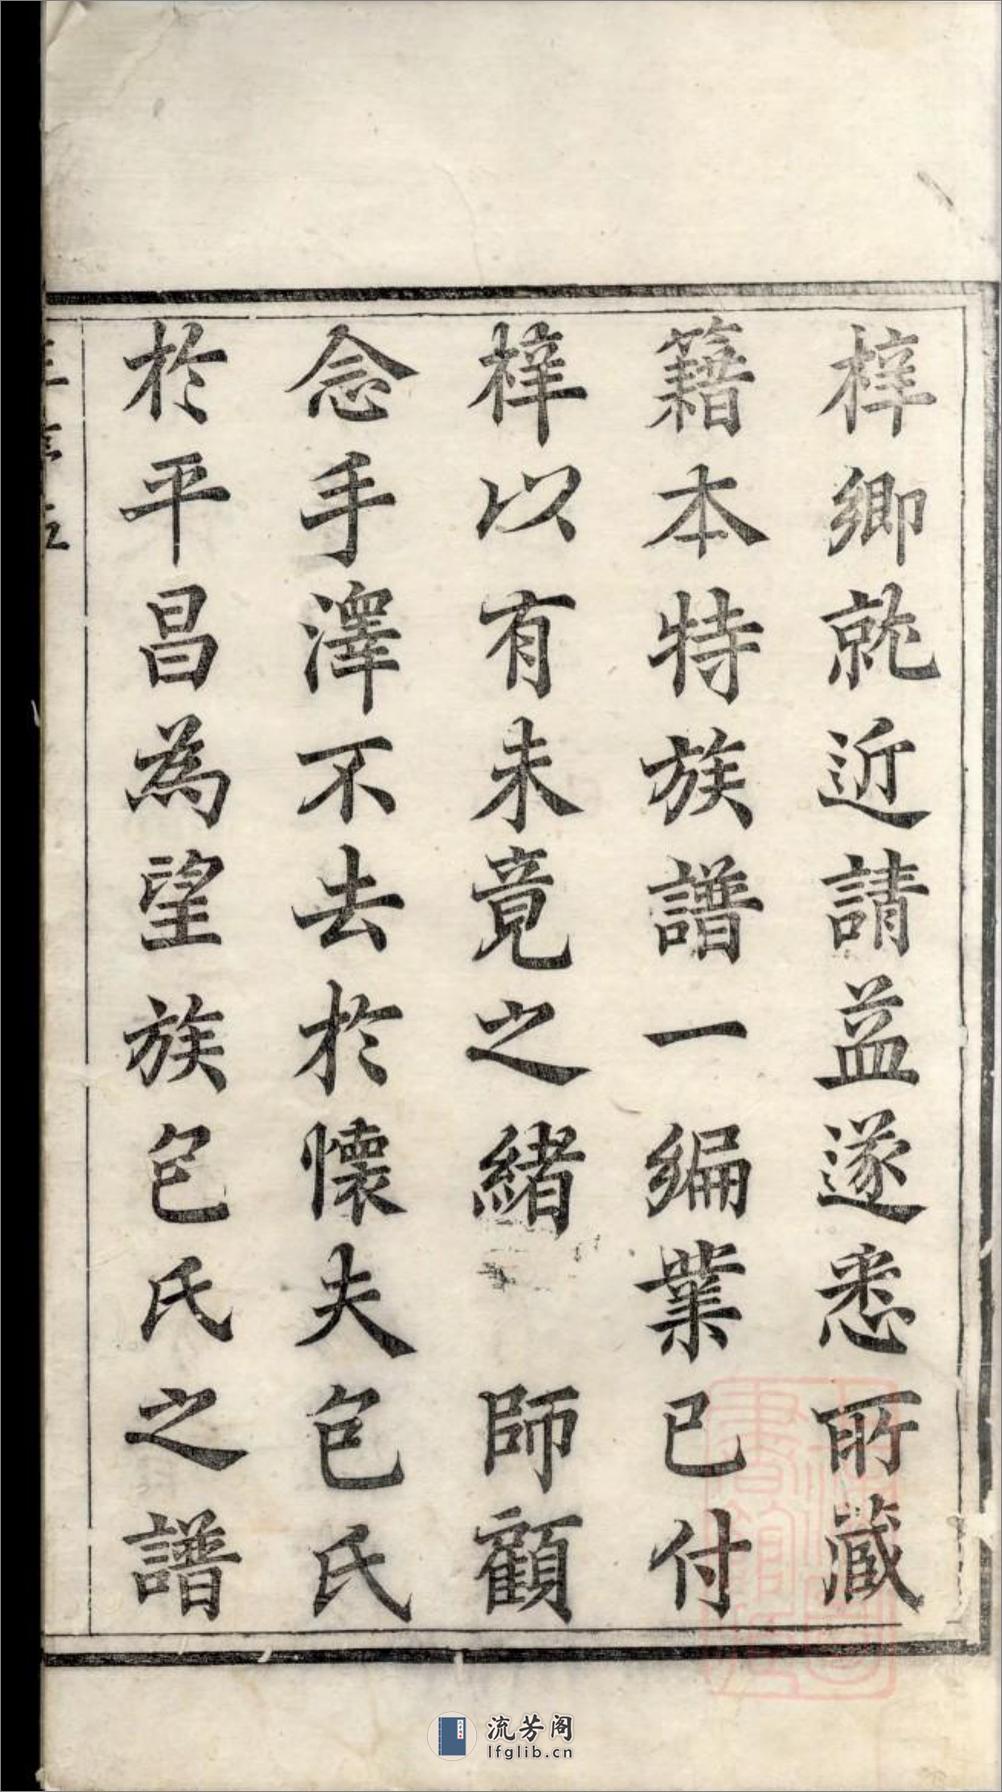 梓卿就近請益遂悉所藏
籍本特族譜一編業已付
梓以有未竟之緒 師顧
念手澤不去於懷夫包氏
於平昌為望族包氏之譜
流芳阁
lfglib.cn